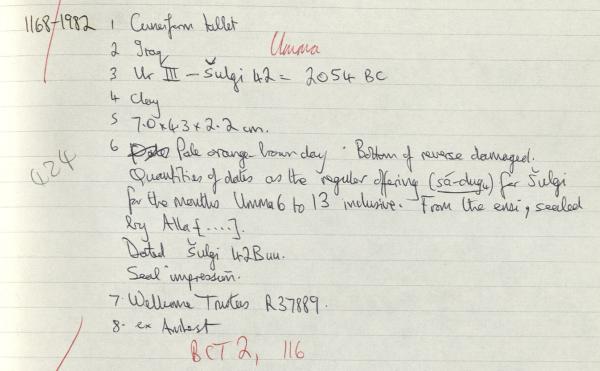 1168-1982 1 Cuneiform tablet
2 Iraq Umma
3 Ur III - Šulgi 42 = 2054 BC
4 Clay
5 7.0 x 4.3 x 2.2 cm.
6 Pale orange brown clay. Bottom of reverse damaged.
Quantities of dates as the regular offering (sá-dug₄) for Šulgi
424
for the months Umma 6 to 13 inclusive. From the ensi, sealed
by Alla[....].
Dated Šulgi 42B uu.
Seal impression.
7 Wellcome Trustees R37889.
8. ex Amherst
BCT 2, 116